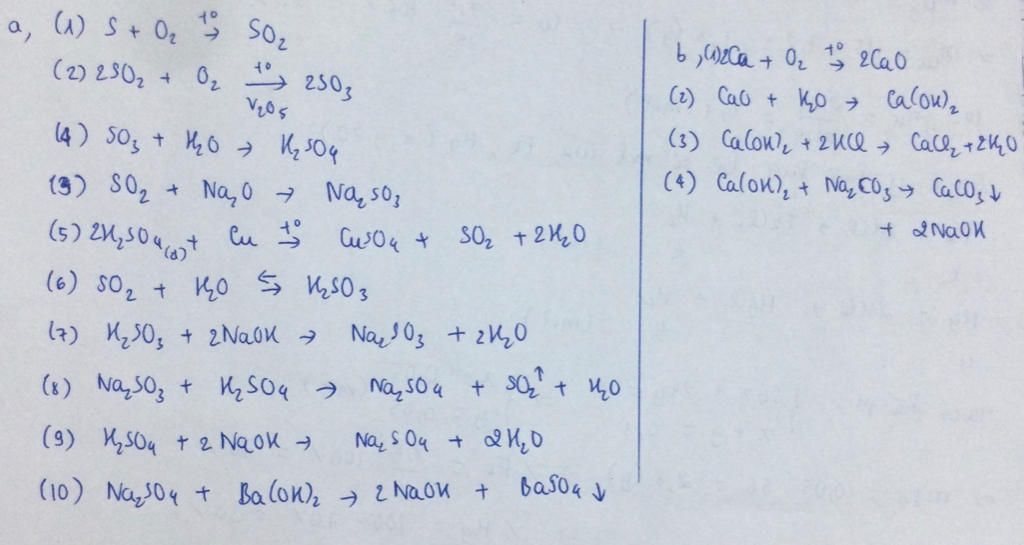 a, (1) S + O₂ →(t°) SO₂
(2) 2SO₂ + O₂ →(t°, V₂O₅) 2SO₃
(4) SO₃ + H₂O → H₂SO₄
(3) SO₂ + Na₂O → Na₂SO₃
(5) 2H₂SO₄(đ) + Cu →(t°) CuSO₄ + SO₂ + 2H₂O
(6) SO₂ + H₂O ⇆ H₂SO₃
(7) H₂SO₃ + 2NaOH → Na₂SO₃ + 2H₂O
(8) Na₂SO₃ + H₂SO₄ → Na₂SO₄ + SO₂↑ + H₂O
(9) H₂SO₄ + 2NaOH → Na₂SO₄ + 2H₂O
(10) Na₂SO₄ + Ba(OH)₂ → 2NaOH + BaSO₄↓
b, (1) 2Ca + O₂ →(t°) 2CaO
(2) CaO + H₂O → Ca(OH)₂
(3) Ca(OH)₂ + 2HCl → CaCl₂ + 2H₂O
(4) Ca(OH)₂ + Na₂CO₃ → CaCO₃↓
+ 2NaOH